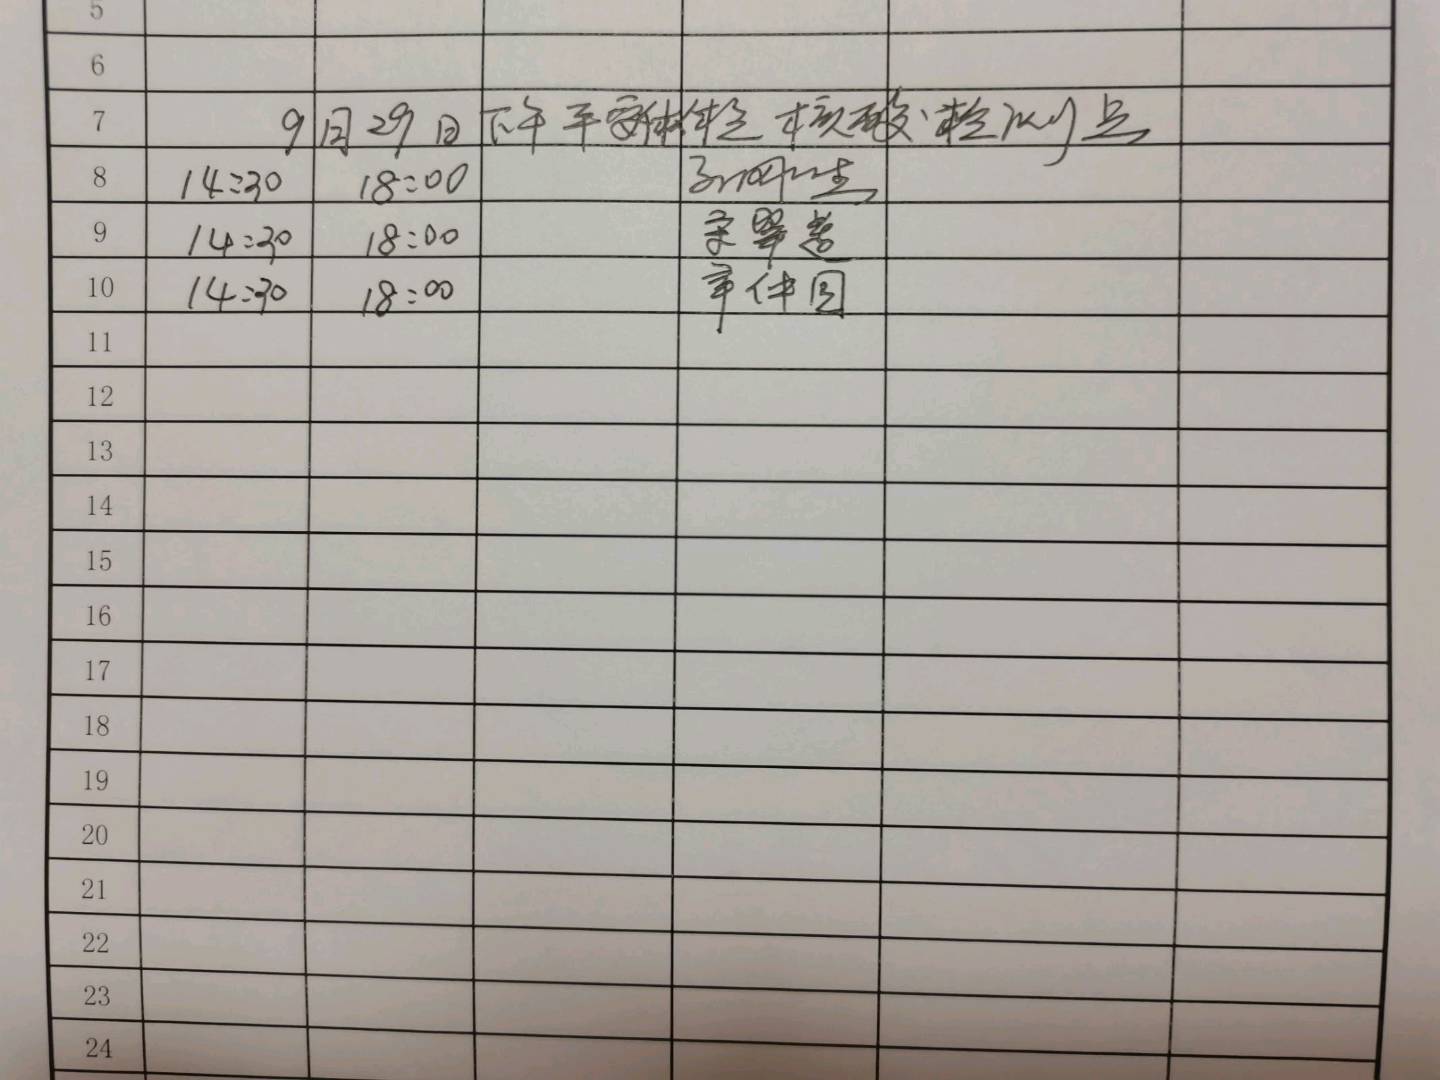 5
6
7 9月29日下午平安体检核酸检测点
8 14:30 18:00
9 14:30 18:00
10 14:30 18:00
11
12
13
14
15
16
17
18
19
20
21
22
23
24